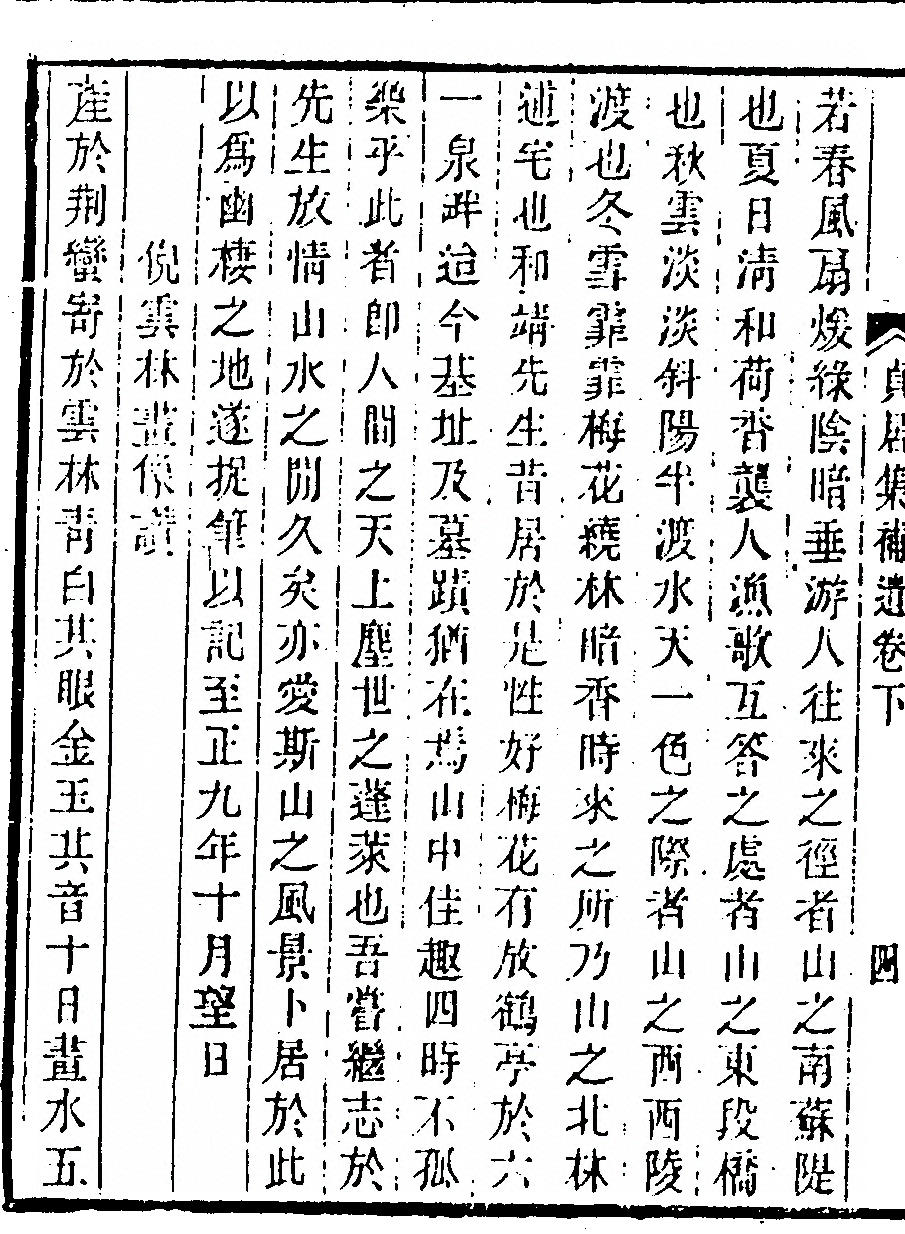 貞居集補遺卷下
四
若春風扇煖綠陰暗垂游人往來之徑者山之南蘇隄
也夏日清和荷香襲人漁歌互答之處者山之東段橋
也秋雲淡淡斜陽半渡水天一色之際者山之西西陵
渡也冬雪霏霏梅花繞林暗香時來之所乃山之北林
逋宅也和靖先生昔居於是性好梅花有放鶴亭於六
一泉畔迨今基址及墓蹟猶在焉山中佳趣四時不孤
樂乎此者卽人間之天上塵世之蓬萊也吾嘗繼志於
先生放情山水之閒久矣亦愛斯山之風景卜居於此
以爲幽棲之地遂捉筆以記至正九年十月望日
倪雲林畫像讚
產於荆蠻寄於雲林青白其眼金玉其音十日畫水五